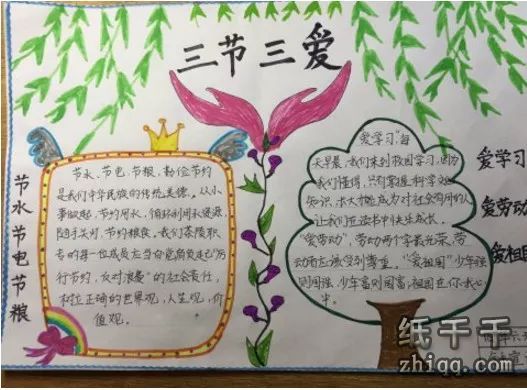 三节三爱
节水节电节粮
节水、节电、节粮，勤俭节约
是我们中华民族的传统美德。从小
事做起，节约用水，循环利用水资源，
随手关灯，节约粮食。我们茶陵职
专的每一位成员应当自觉肩负起“厉
行节约，反对浪费”的社会责任，
树立正确的世界观，人生观，价
值观。
“爱学习”每
天早晨，我们来到校园学习，因为
我们懂得，只有掌握科学文化
知识，长大才能成为对社会有用的人
让我们在读书中快乐成长。
“爱劳动”，劳动两个字最光荣，劳
动者应该受到尊重。“爱祖国”少年强
则国强，少年富则国富，祖国在你我心
中。
爱学习
爱劳动
爱祖国
纸千千
zhiqq.com